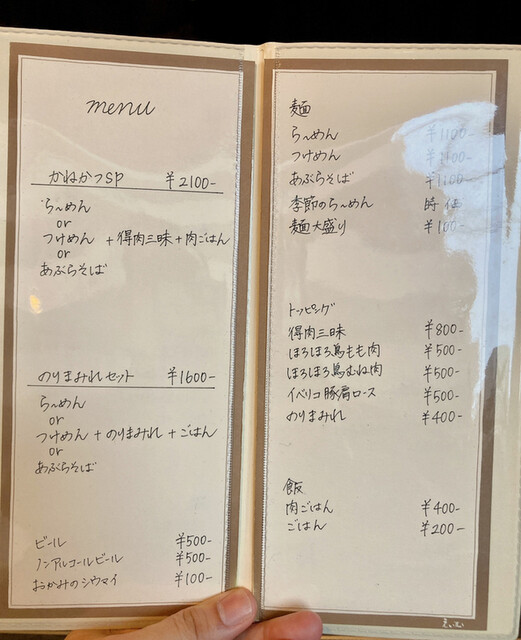 menu
かねかつSP ¥2100-
らーめん
or
つけめん +得肉三昧+肉ごはん
or
あぶらそば
のりまみれセット ¥1600-
らーめん
or
つけめん +のりまみれ +ごはん
or
あぶらそば
ビール ¥500-
ノンアルコールビール ¥500-
おかみのシウマイ ¥100-
麺
らーめん ¥1100-
つけめん ¥1100-
あぶらそば ¥1100-
季節のらーめん 時価
麺大盛り ¥100-
トッピング
得肉三昧 ¥800-
ほろほろ鳥もも肉 ¥500-
ほろほろ鳥むね肉 ¥500-
イベリコ豚肩ロース ¥500-
のりまみれ ¥400-
飯
肉ごはん ¥400-
ごはん ¥200-